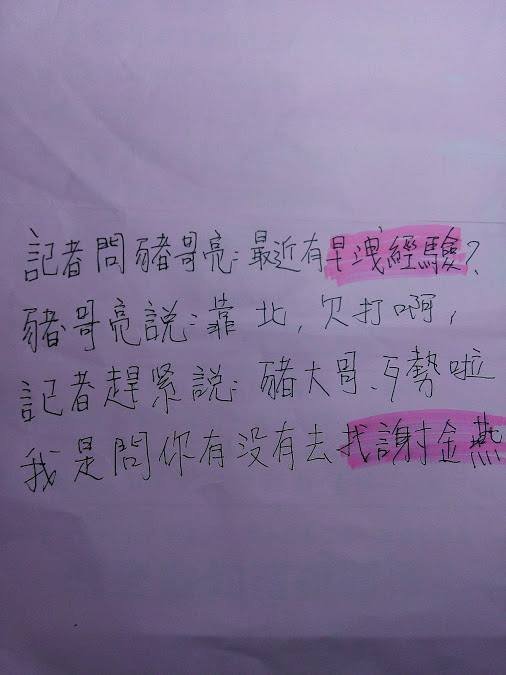 記者問豬哥亮:最近有早洩經驗?
豬哥亮說:靠北,欠打啊,
記者趕緊說:豬大哥、歹勢啦
我是問你有没有去找謝金燕